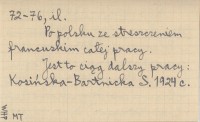 72-76, il.
Po polsku ze streszczeniem
francuskim całej pracy.
Jest to ciąg dalszy pracy:
Kosińska-Bartnicka S. 1924 c.
MT